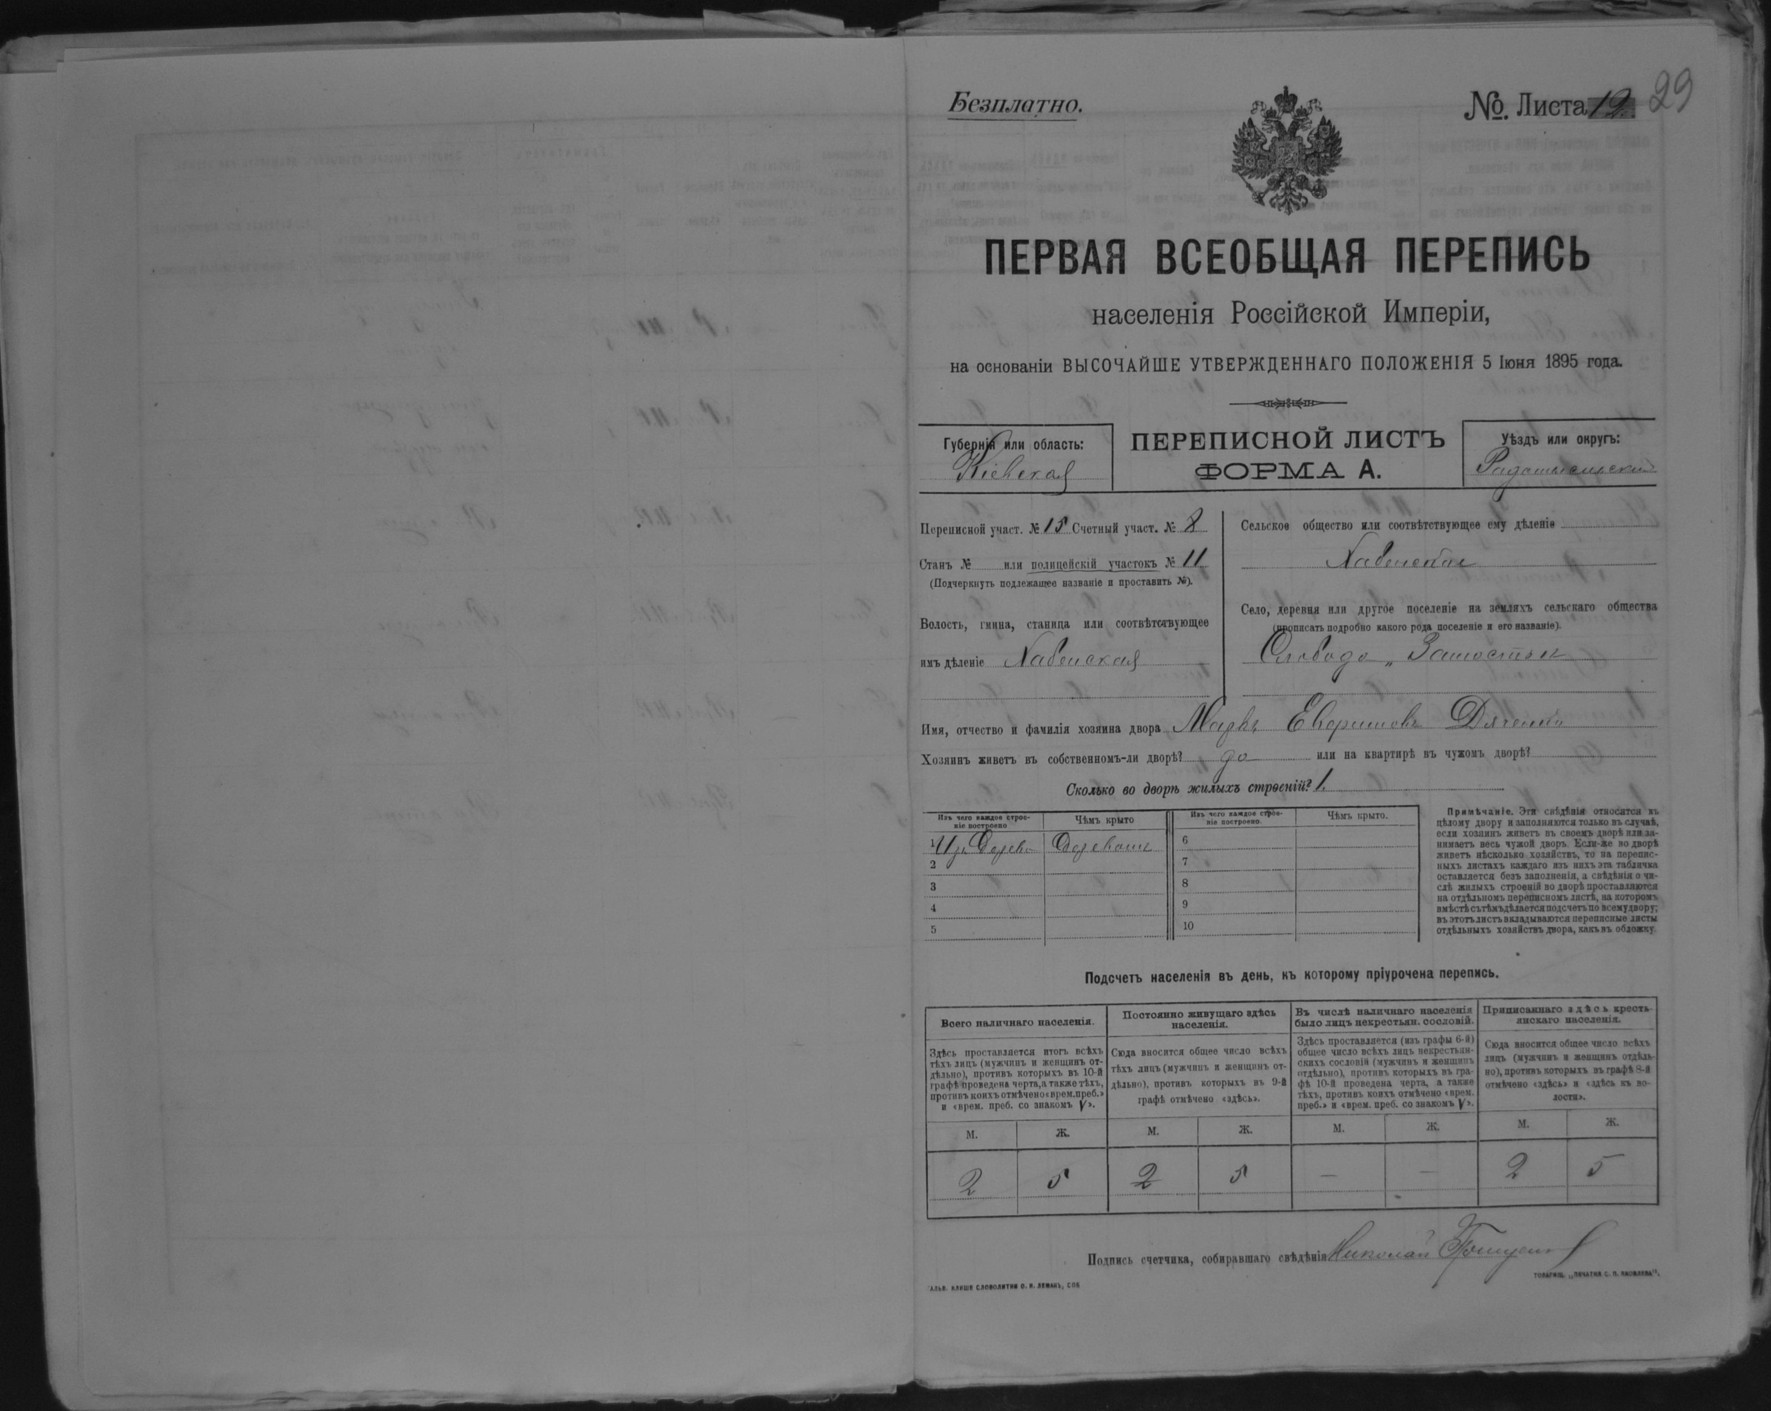 Безплатно.
№. Листа 12. 29
ПЕРВАЯ ВСЕОБЩАЯ ПЕРЕПИСЬ
населенія Россійской Имперіи,
на основаніи ВЫСОЧАЙШЕ УТВЕРЖДЕННАГО ПОЛОЖЕНІЯ 5 Іюня 1895 года.
Губернія или область:
Кіевская
ПЕРЕПИСНОЙ ЛИСТЪ
ФОРМА А.
Уѣздъ или округъ:
Радомысльскій
Переписной участ. № 15 Счетный участ. № 8
Станъ № или полицейскій участокъ № 11
(Подчеркнуть подлежащее названіе и проставить №).
Волость, гмина, станица или соотвѣтствующее
имъ дѣленіе Хабенская
Сельское общество или соотвѣтствующее ему дѣленіе
Хабенское
Село, деревня или другое поселеніе на земляхъ сельскаго общества
(прописать подробно какого рода поселеніе и его названіе).
Слобода „ Замостье
Имя, отчество и фамилія хозяина двора Марко
Хозяинъ живетъ въ собственномъ-ли дворѣ? да или на квартирѣ въ чужомъ дворѣ?
Сколько во дворѣ жилыхъ строеній? 1.
Изъ чего каждое строеніе построено
Чѣмъ крыто
Изъ чего каждое строеніе построено.
Чѣмъ крыто.
1 Изъ Дерева
2
3
4
5
6
7
8
9
10
Примѣчаніе. Эти свѣдѣнія относятся къ
цѣлому двору и заполняются только въ случаѣ,
если хозяинъ живетъ въ своемъ дворѣ или за-
нимаетъ весь чужой дворъ. Если-же во дворѣ
живетъ нѣсколько хозяйствъ, то на перепис-
ныхъ листахъ каждаго изъ нихъ эта табличка
оставляется безъ заполненія, а свѣдѣнія о чи-
слѣ жилыхъ строеній во дворѣ проставляются
на отдѣльномъ переписномъ листѣ, на которомъ
вмѣстѣ съ тѣмъ дѣлается подсчетъ по всему двору;
въ этотъ листъ вкладываются переписные листы
отдѣльныхъ хозяйствъ двора, какъ въ обложку.
Подсчетъ населенія въ день, къ которому пріурочена перепись.
Всего наличнаго населенія.
Здѣсь проставляется итогъ всѣхъ
тѣхъ лицъ (мужчинъ и женщинъ от-
дѣльно), противъ которыхъ въ 10-й
графѣ проведена черта, а также тѣхъ,
противъ коихъ отмѣчено «врем. преб.»
и «врем. преб. со знакомъ V».
Постоянно живущаго здѣсь
населенія.
Сюда вносится общее число всѣхъ
тѣхъ лицъ (мужчинъ и женщинъ от-
дѣльно), противъ которыхъ въ 9-й
графѣ отмѣчено «здѣсь».
Въ числѣ наличнаго населенія
было лицъ некрестьян. сословій.
Здѣсь проставляется (изъ графы 6-й)
общее число всѣхъ лицъ некрестьян-
скихъ сословій (мужчинъ и женщинъ
отдѣльно), противъ которыхъ въ гра-
фѣ 10-й проведена черта, а также
тѣхъ, противъ коихъ отмѣчено «врем.
преб.» и «врем. преб. со знакомъ V».
Приписаннаго здѣсь кресть-
янскаго населенія.
Сюда вносится общее число всѣхъ
лицъ (мужчинъ и женщинъ отдѣль-
но), противъ которыхъ въ графѣ 8-й
отмѣчено «здѣсь» и «здѣсь къ во-
лости».
М. Ж. М. Ж. М. Ж. М. Ж.
2 5 2 5 — — 2 5
Подпись счетчика, собиравшаго свѣдѣнія Николай
АЛЬВ. КЛИШЕ СЛОВОЛИТНИ О. И. ЛЕМАНЪ, СПБ
ТОВАРИЩ. „ПЕЧАТНЯ С. П. ЯКОВЛЕВА“.